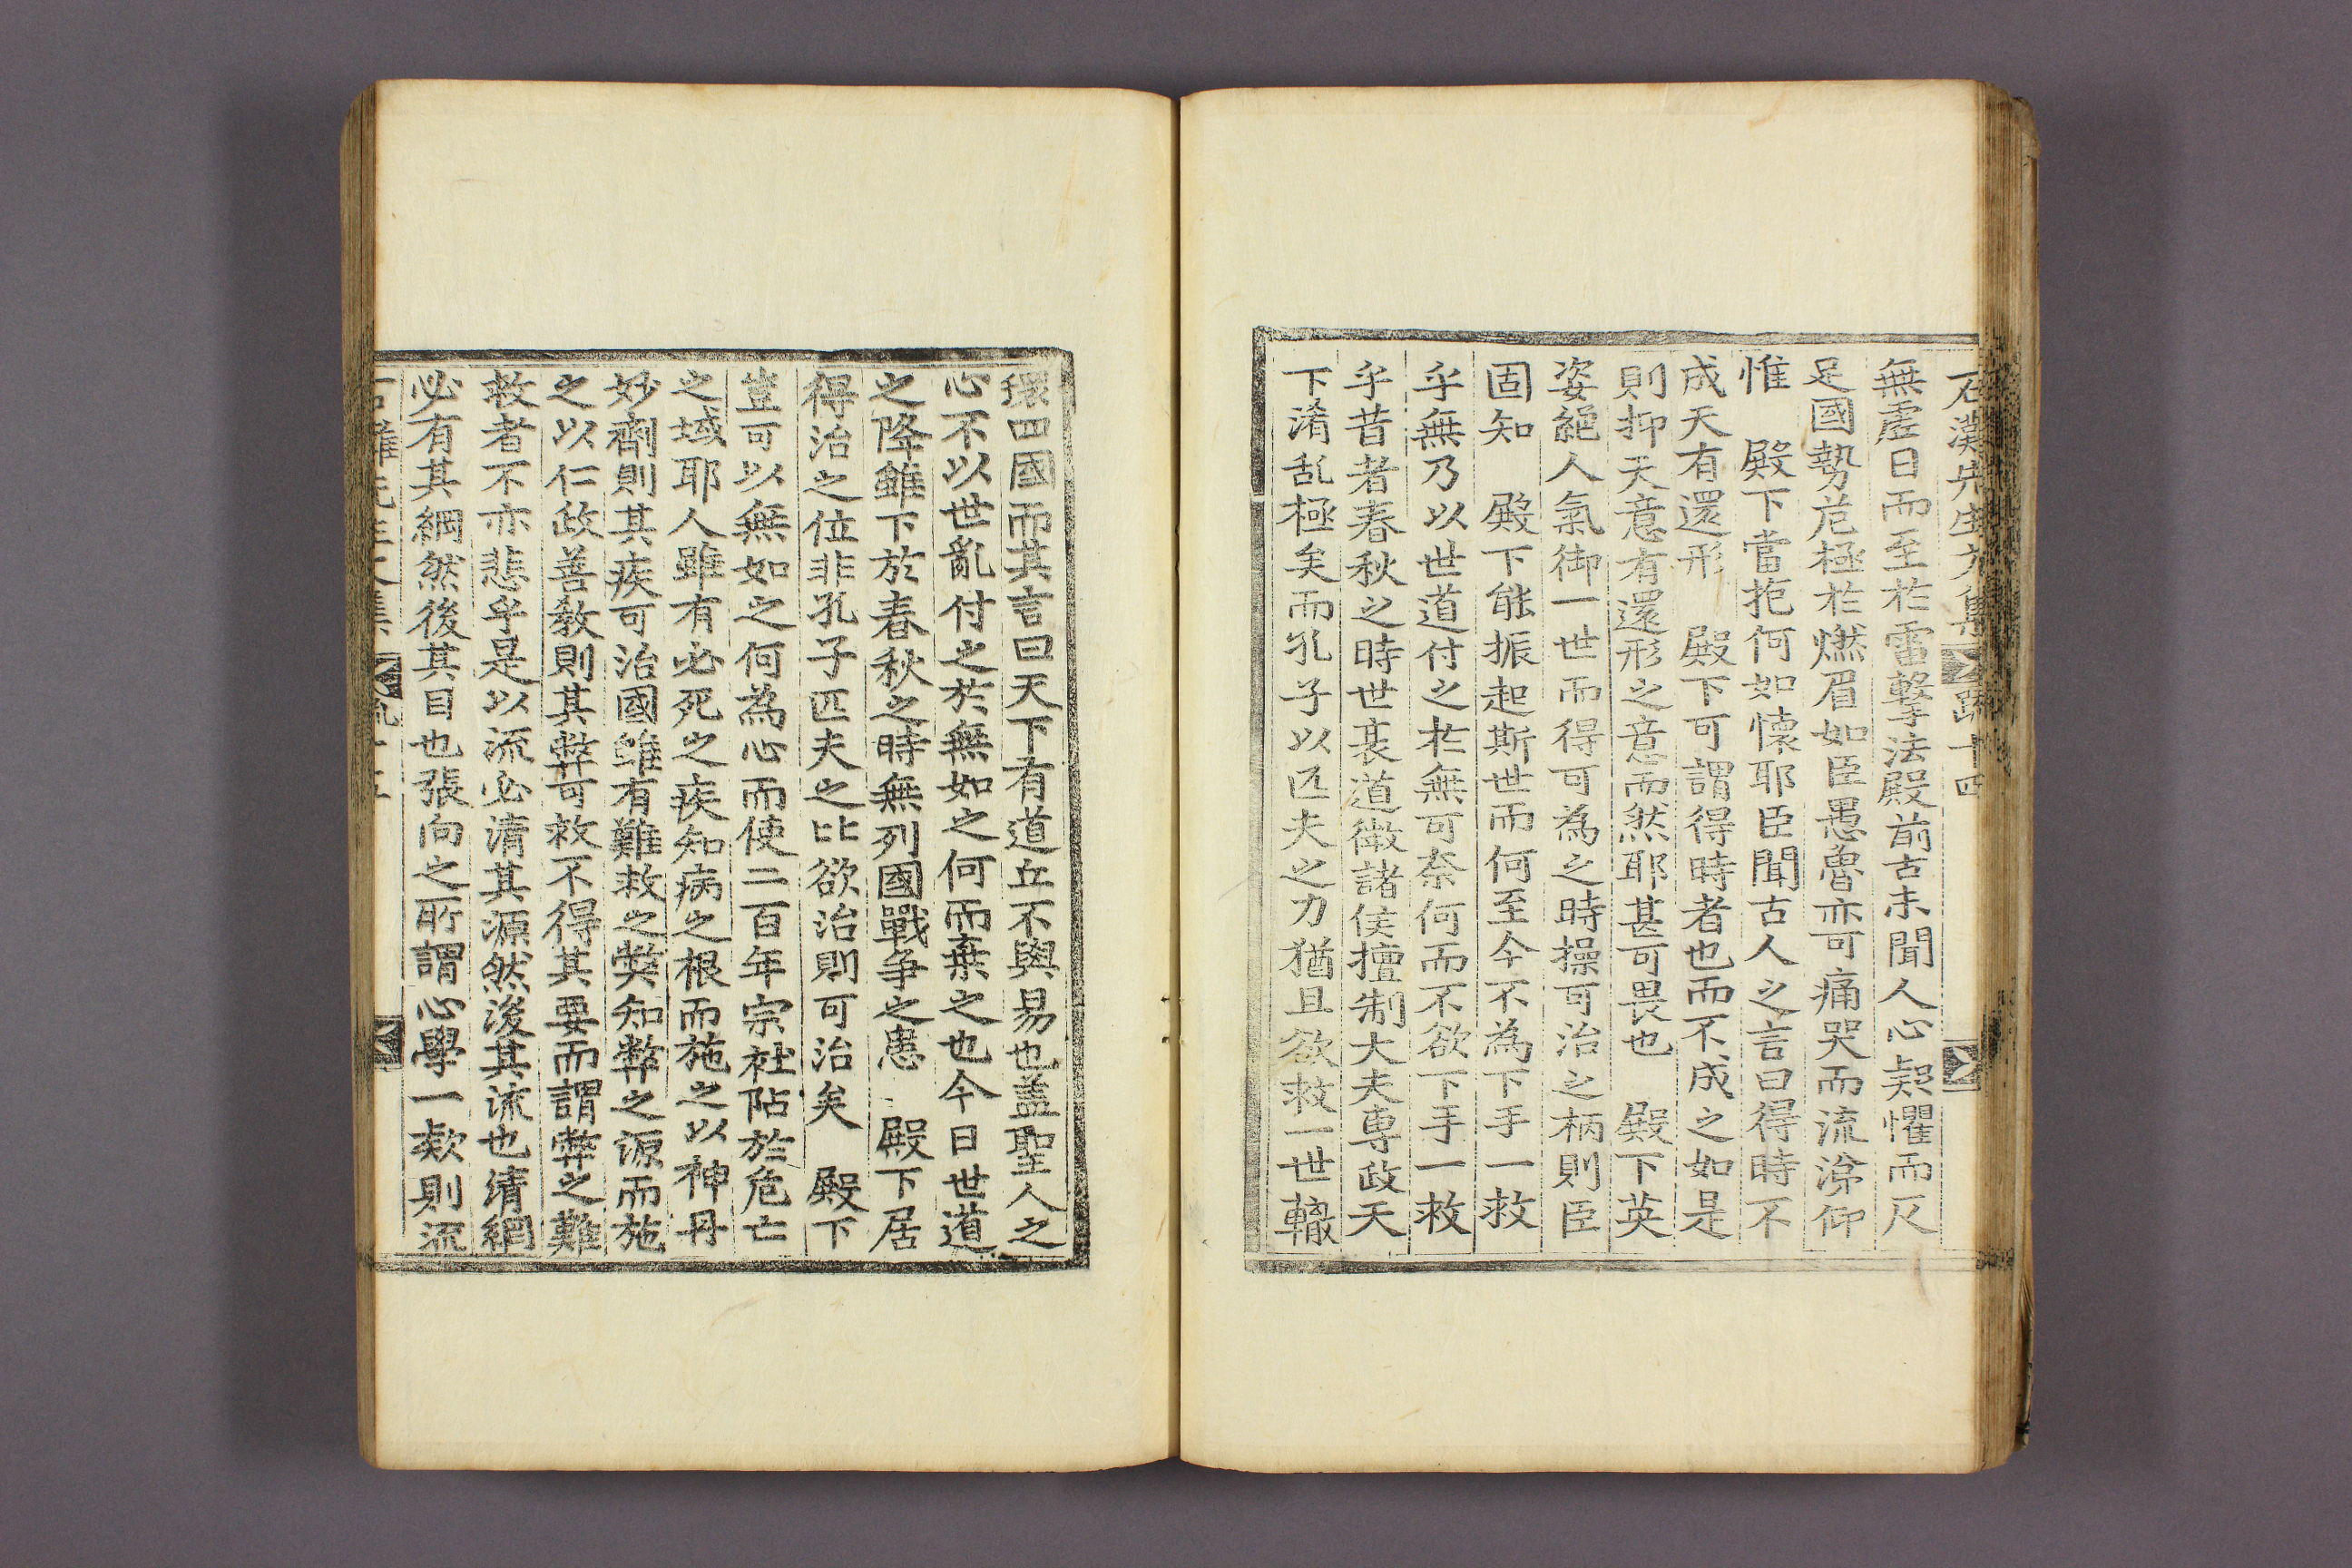 石灘先生文集 疏 十四
無虛日而至於雷擊法殿前古未聞人心疑懼而尺
足國勢危極於燃眉如臣愚魯亦可痛哭而流涕仰
惟 殿下當抱何如懷耶臣聞古人之言曰得時不
成天有還形 殿下可謂得時者也而不成之如是
則抑天意有還形之意而然耶甚可畏也 殿下英
姿絕人氣御一世而得可為之時操可治之柄則臣
固知 殿下能振起斯世而何至今不為下手一救
乎無乃以世道付之於無可奈何而不欲下手一救
乎昔者春秋之時世衰道微諸侯擅制大夫專政天
下淆乱極矣而孔子以匹夫之力猶且欲救一世轍
環四國而其言曰天下有道丘不與易也盖聖人之
心不以世亂付之於無如之何而棄之也今日世道
之降雖下於春秋之時無列國戰爭之患 殿下居
得治之位非孔子匹夫之比欲治則可治矣 殿下
豈可以無如之何為心而使二百年宗社阽於危亡
之域耶人雖有必死之疾知病之根而施之以神丹
妙劑則其疾可治國雖有難救之弊知弊之源而施
之以仁政善教則其弊可救不得其要而謂弊之難
救者不亦悲乎是以流必清其源然後其流也清網
必有其綱然後其目也張向之所謂心學一款則流
石灘先生文集 疏 十五